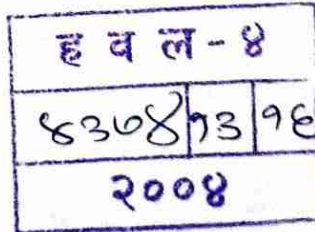 ह व ल - ४
४३७४ १३ १६
२००४